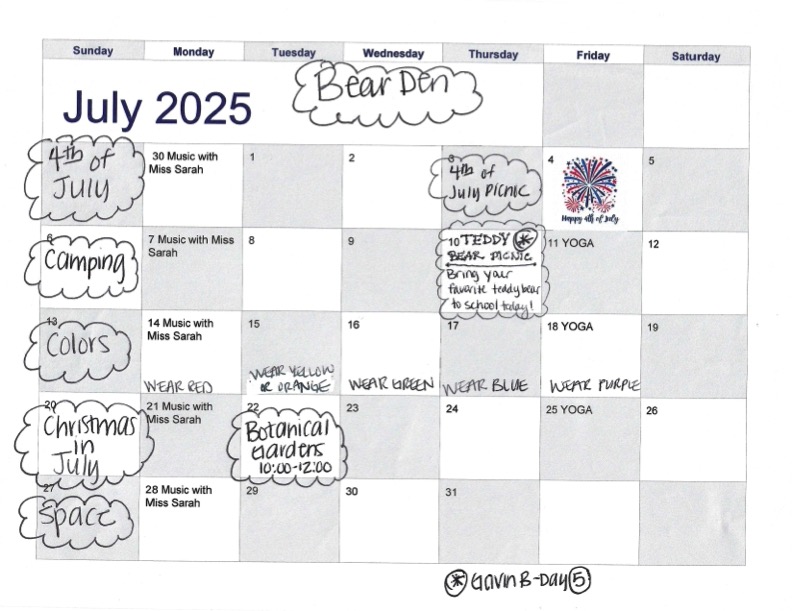 Sunday Monday Tuesday Wednesday Thursday Friday Saturday
July 2025
Bear Den
4th of
July
30 Music with
Miss Sarah
1
2
3
4th of
July Picnic
4
Happy 4th of July
5
6
Camping
7 Music with Miss
Sarah
8
9
10 TEDDY *
BEAR PICNIC
Bring your
favorite teddy bear
to school today!
11 YOGA
12
13
Colors
14 Music with
Miss Sarah
WEAR RED
15
WEAR YELLOW
OR ORANGE
16
WEAR GREEN
17
WEAR BLUE
18 YOGA
WEAR PURPLE
19
20
Christmas
in
July
21 Music with
Miss Sarah
22
Botanical
Gardens
10:00-12:00
23
24
25 YOGA
26
27
Space
28 Music with
Miss Sarah
29
30
31
* Gavin B-Day 5